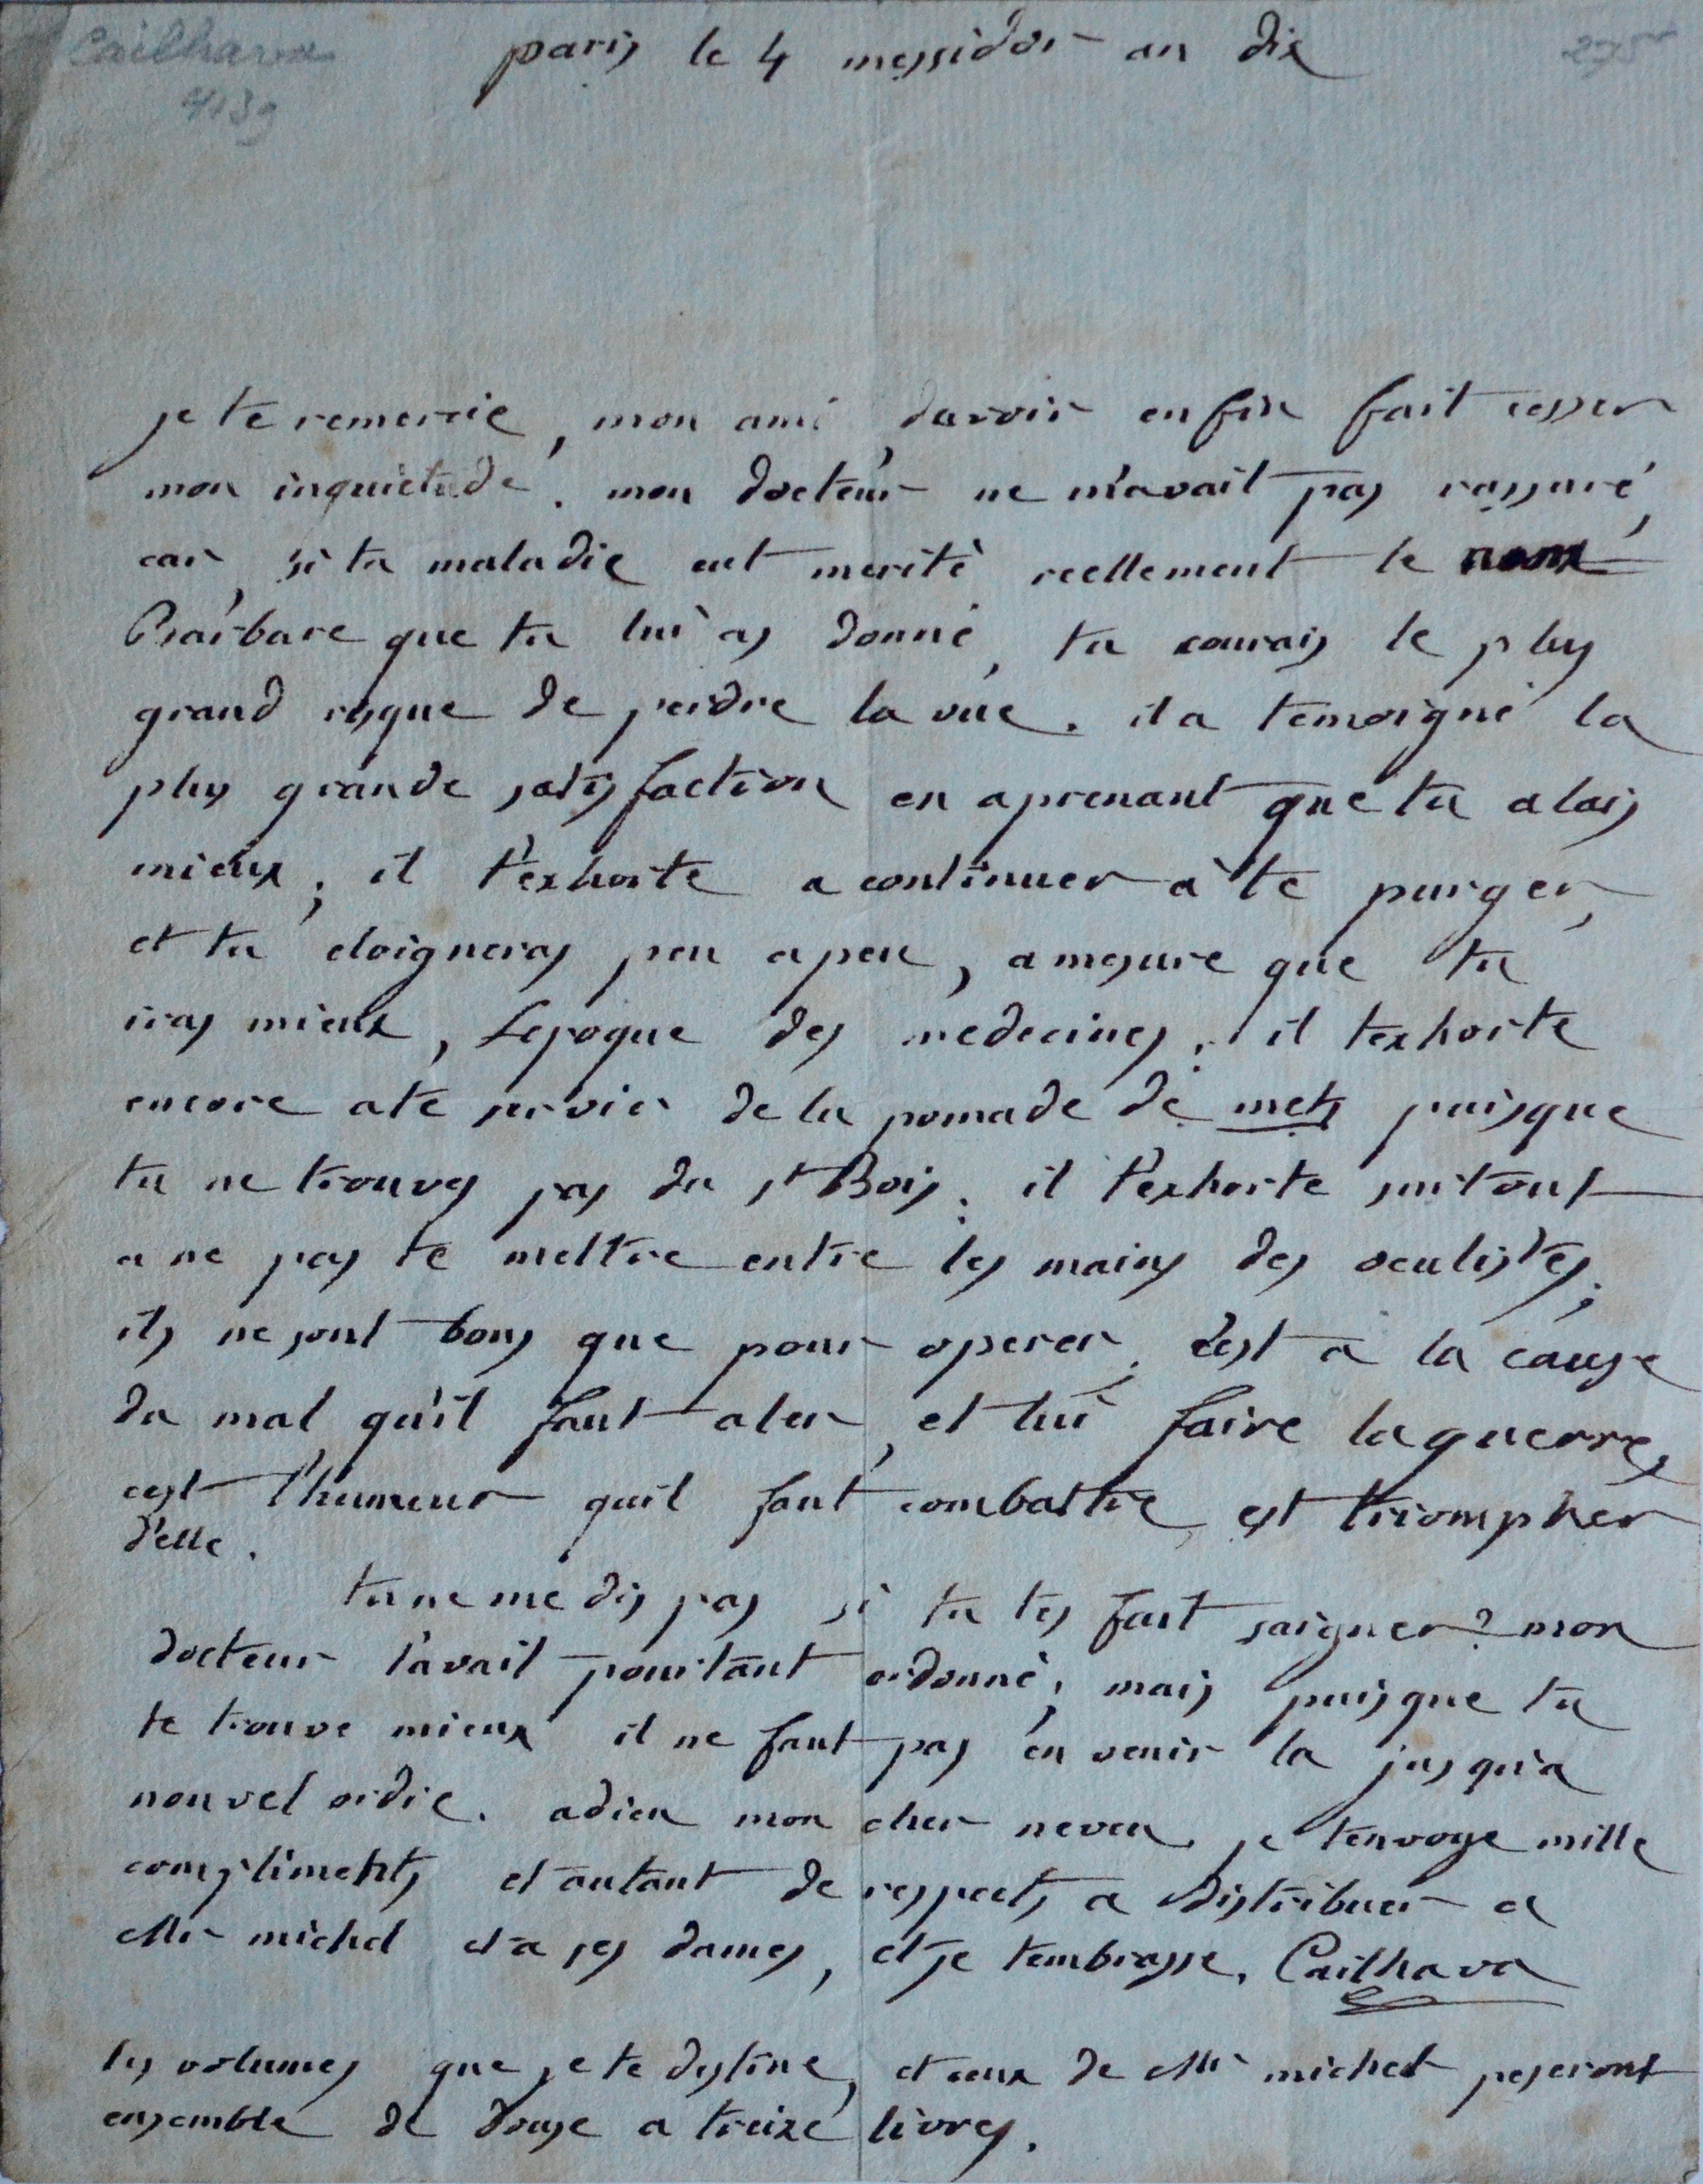 Cailhava
paris le 4 messidor an dix
4139
je te remercie, mon ami, davoir enfin fait cesser
mon inquietude. mon docteur ne m'avait pas rassuré,
car, si ta maladie eut merité reellement le nom
Barbare que tu lui as donné, tu courais le plus
grand risque de perdre la vüe. il a temoigné la
plus grande satisfaction en aprenant que tu alais
mieux; il t'exhorte a continuer a te purger,
et tu eloigneras peu apeu, amesure que tu
iras mieux, Lepoque des medecines. il texhorte
encore a te servir de la pomade de metz puisque
tu ne trouves pas du st Bois. il t'exhorte surtout
a ne pas te mettre entre les mains des oculistes;
ils ne sont bons que pour operer. c'est a la cause
du mal qu'il faut aler, et lui faire laguerre,
cest l'humeur quil faut combattre est triompher
d'elle.
tu ne me dis pas si tu tes fait saigner? mon
docteur l'avait pourtant ordonné, mais puisque tu
te trouve mieux il ne faut pas en venir la jusqu'a
nouvel ordre. adieu mon cher neveu, je tenvoye mille
compliments et autant de respects a distribuer a
Mr michel et a ses dames, et je tembrasse. Cailhava
les volumes que je te destine, et ceux de Mr michel peseront
ensemble de douse a treize livres.